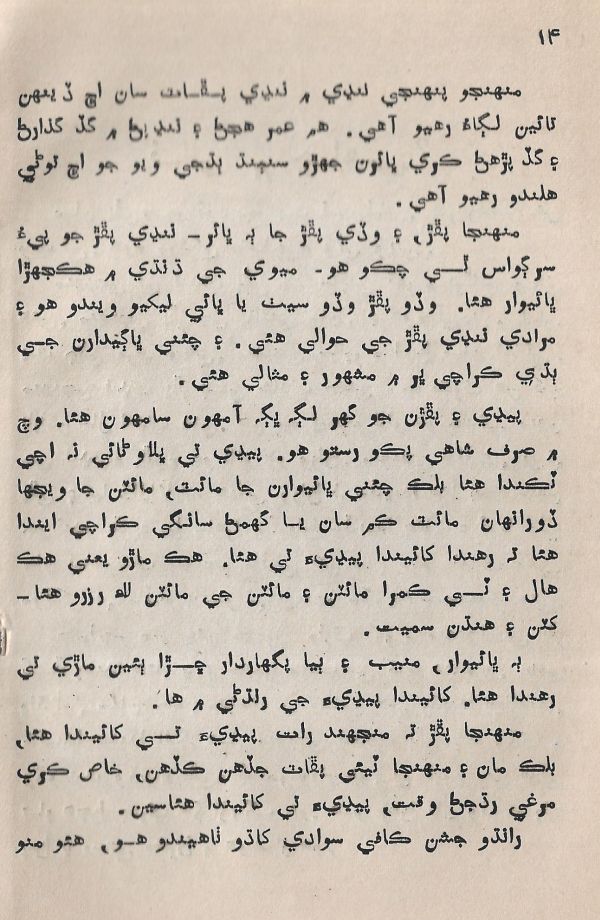 ۱۴
منهنجو پنهنجي ننڍي ۾ ننڍي پـڦـات سان اڄ ڏينهن
تائين لڳاءُ رهيو آهي. هم عمر هجڻ ۽ ننڍپڻ ۾ گڏ گذارڻ
۽ گڏ پڙهڻ ڪري ڀائرن جهڙو سٻنڌ ٻڌجي ويو جو اڄ توڻي
هلندو رهيو آهي.
منهنجا پڦڙ، ۽ وڏي پڦڙ جا ٻه ڀائر ـ ننڍي پڦڙ جو پيءُ
سرڳواس ٿـي چڪو هو ـ ميوي جي ڌنڌي ۾ هڪجهڙا
ڀائيوار هئا. وڏو پڦڙ وڏو سيٺ يا ڀائي ليکيو ويندو هو ۽
مرادي ننڍي پڦڙ جي حوالي هئي. ۽ چئني ڀاڳيدارن جـي
ٻڌي ڪراچي ڀر ۾ مشهور ۽ مثالي هئي.
پيڍي ۽ پڦڙن جو گهر لڳ ڀڳ آمهون سامهون هئا. وچ
۾ صرف شاهي پڪو رستو هو. پيڍي تي پلاوڻائي نه اچي
ٽڪندا هئا بلڪ چئني ڀائيوارن جا مائٽ، مائٽن جا ويجها
ڏورانهان مائٽ ڪم سان يـا گهمڻ سانگي ڪراچي ايندا
هئا ته رهندا کائيندا پيڍيءَ تي هئا. هڪ ماڙو يعني هڪ
هال ۽ ٽـي ڪمرا مائٽن ۽ مائٽن جي مائٽن لاءِ رزرو هئا ـ
کٽن ۽ هنڌن سميت.
ٻه ڀائيوار، منيب ۽ ٻيا پگهاردار ڇـڙا ٻئين ماڙي تي
رهندا هئا. کائيندا پيڍيءَ جي رنڌڻي ۾ ها.
منهنجا پڦڙ ته منجهند رات پيڍيءَ تـي کائيندا هئا،
بلڪ مان ۽ منهنجا ٽيئي پڦات جڏهن ڪڏهن، خاص ڪري
مرغي رڌجڻ وقت، پيڍيءَ تي کائيندا هئاسين.
رانڌو جشن ڪافي سوادي کاڌو ٺاهيندو هـو، هئو منو